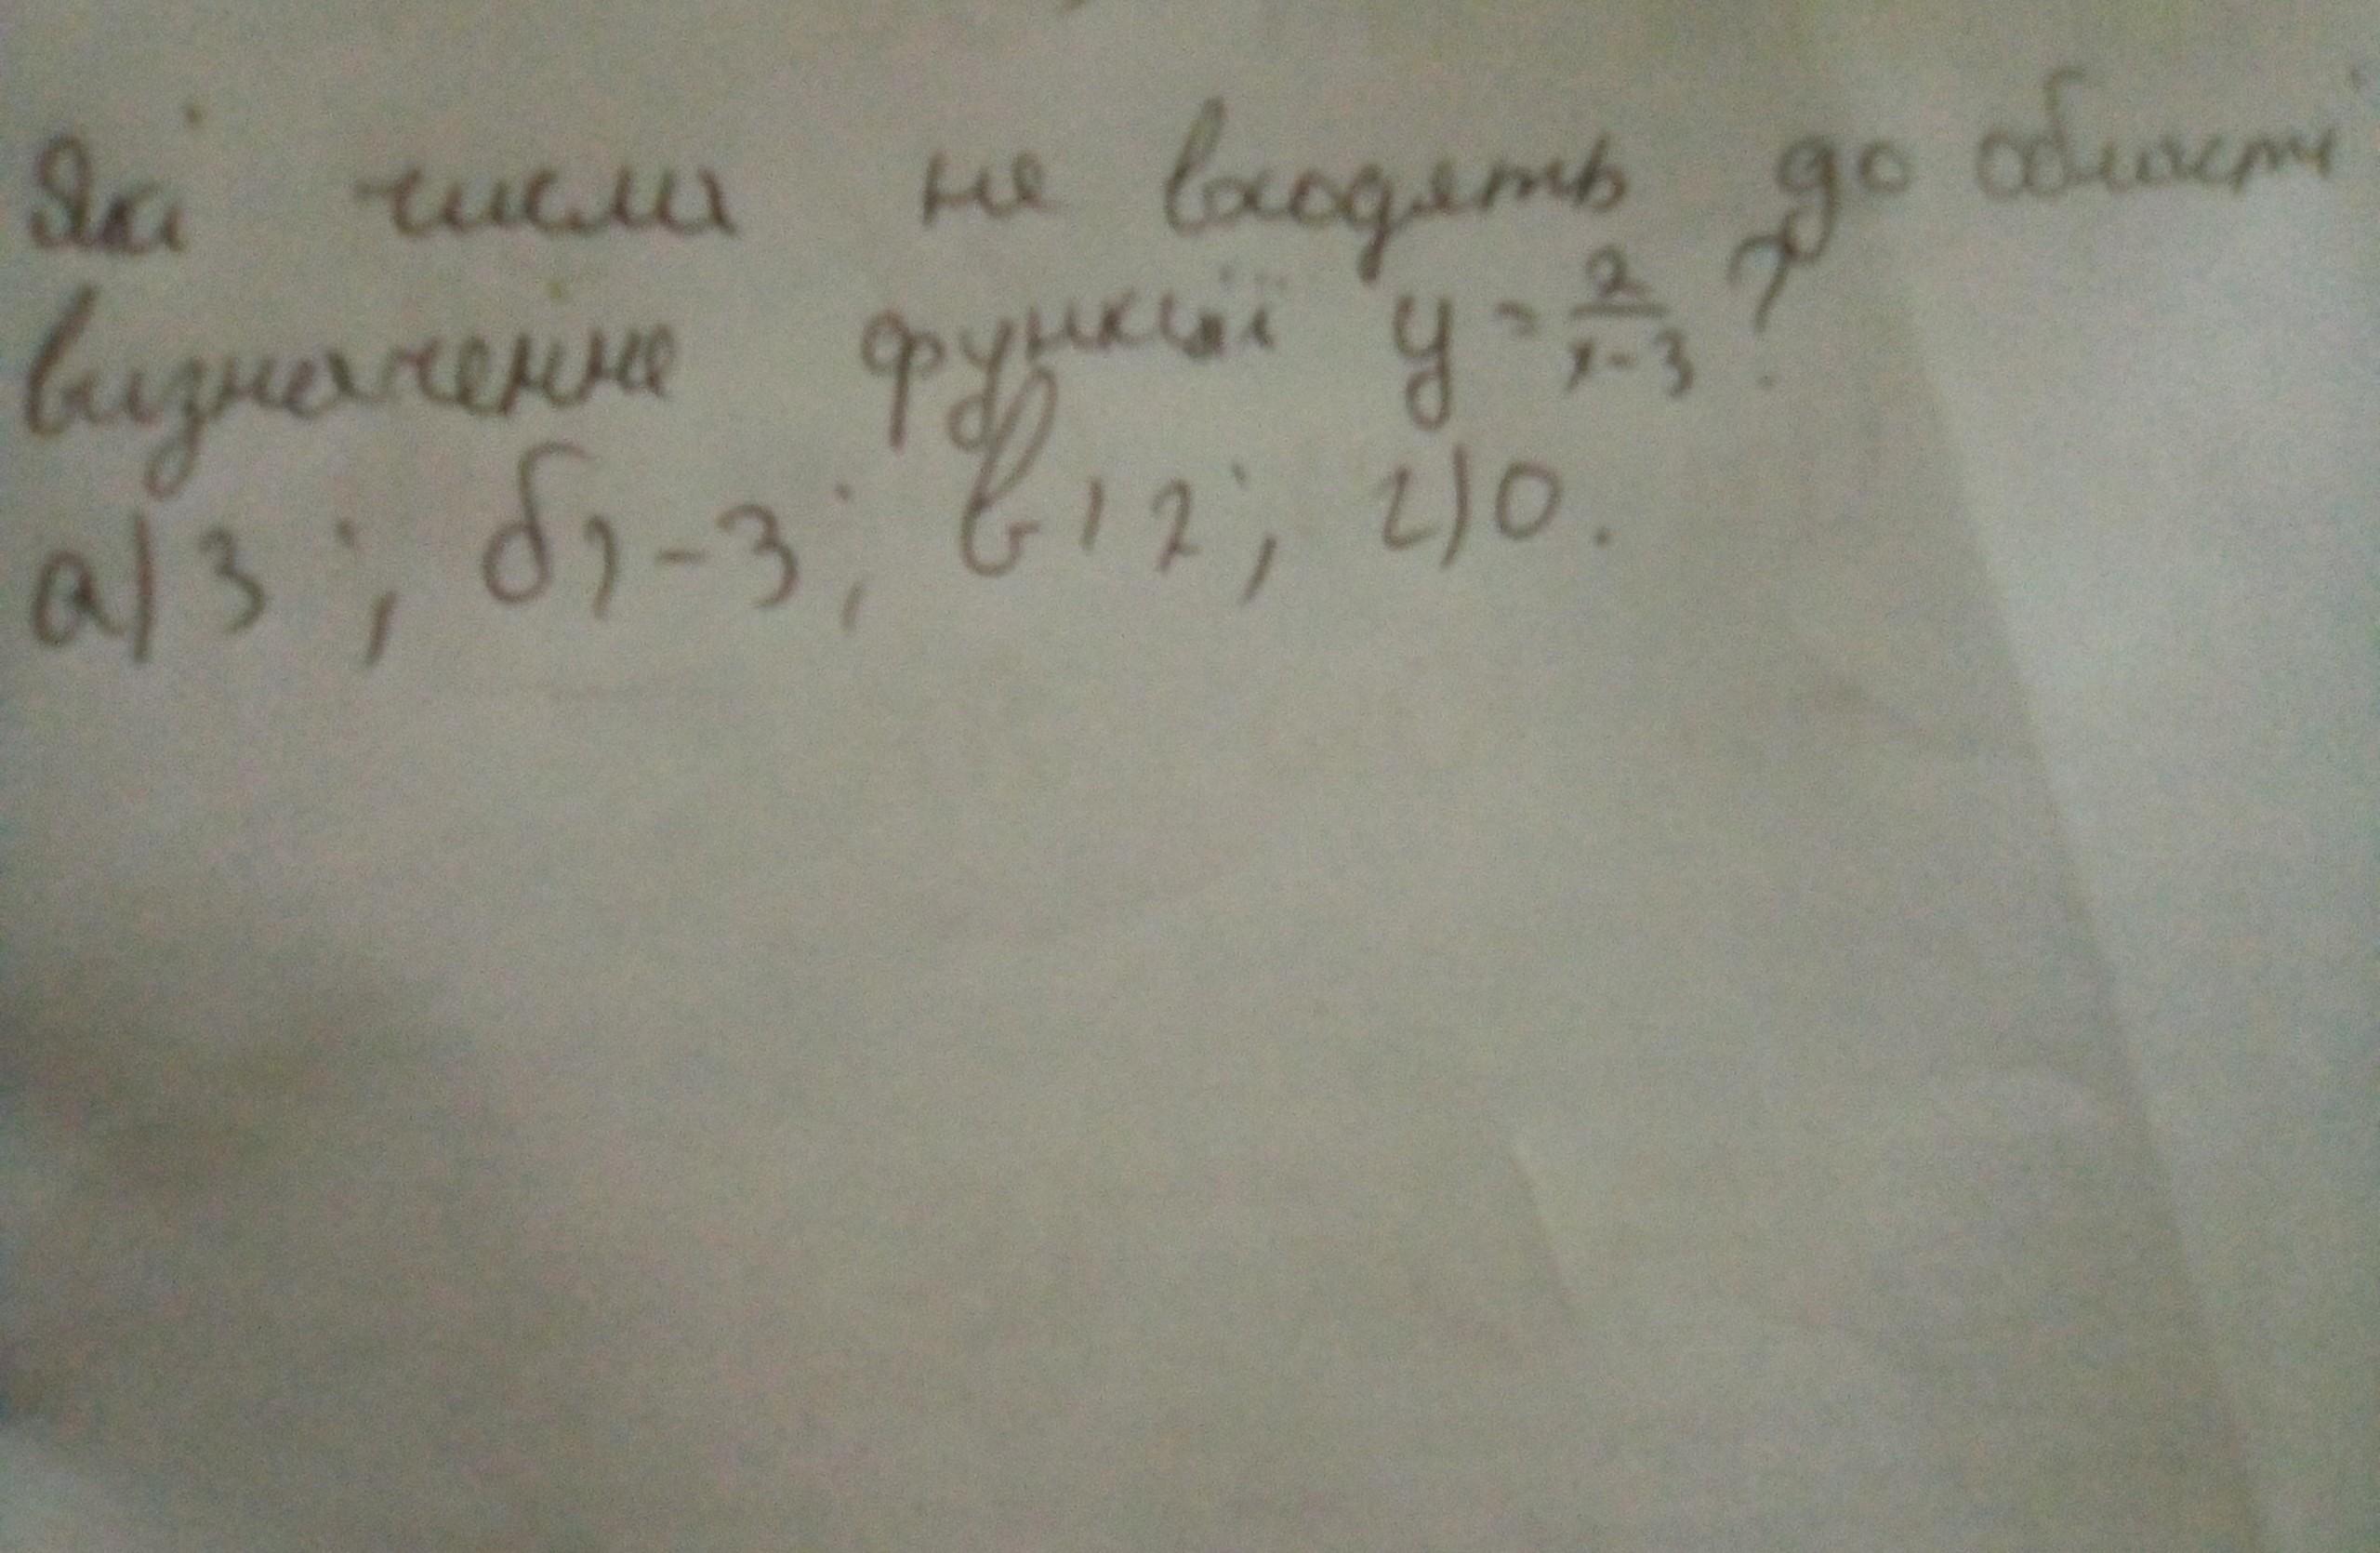 Які числа не входять до області
визначення функції y = \frac{2}{x-3}?
а) 3; б) -3; в) 2; г) 0.